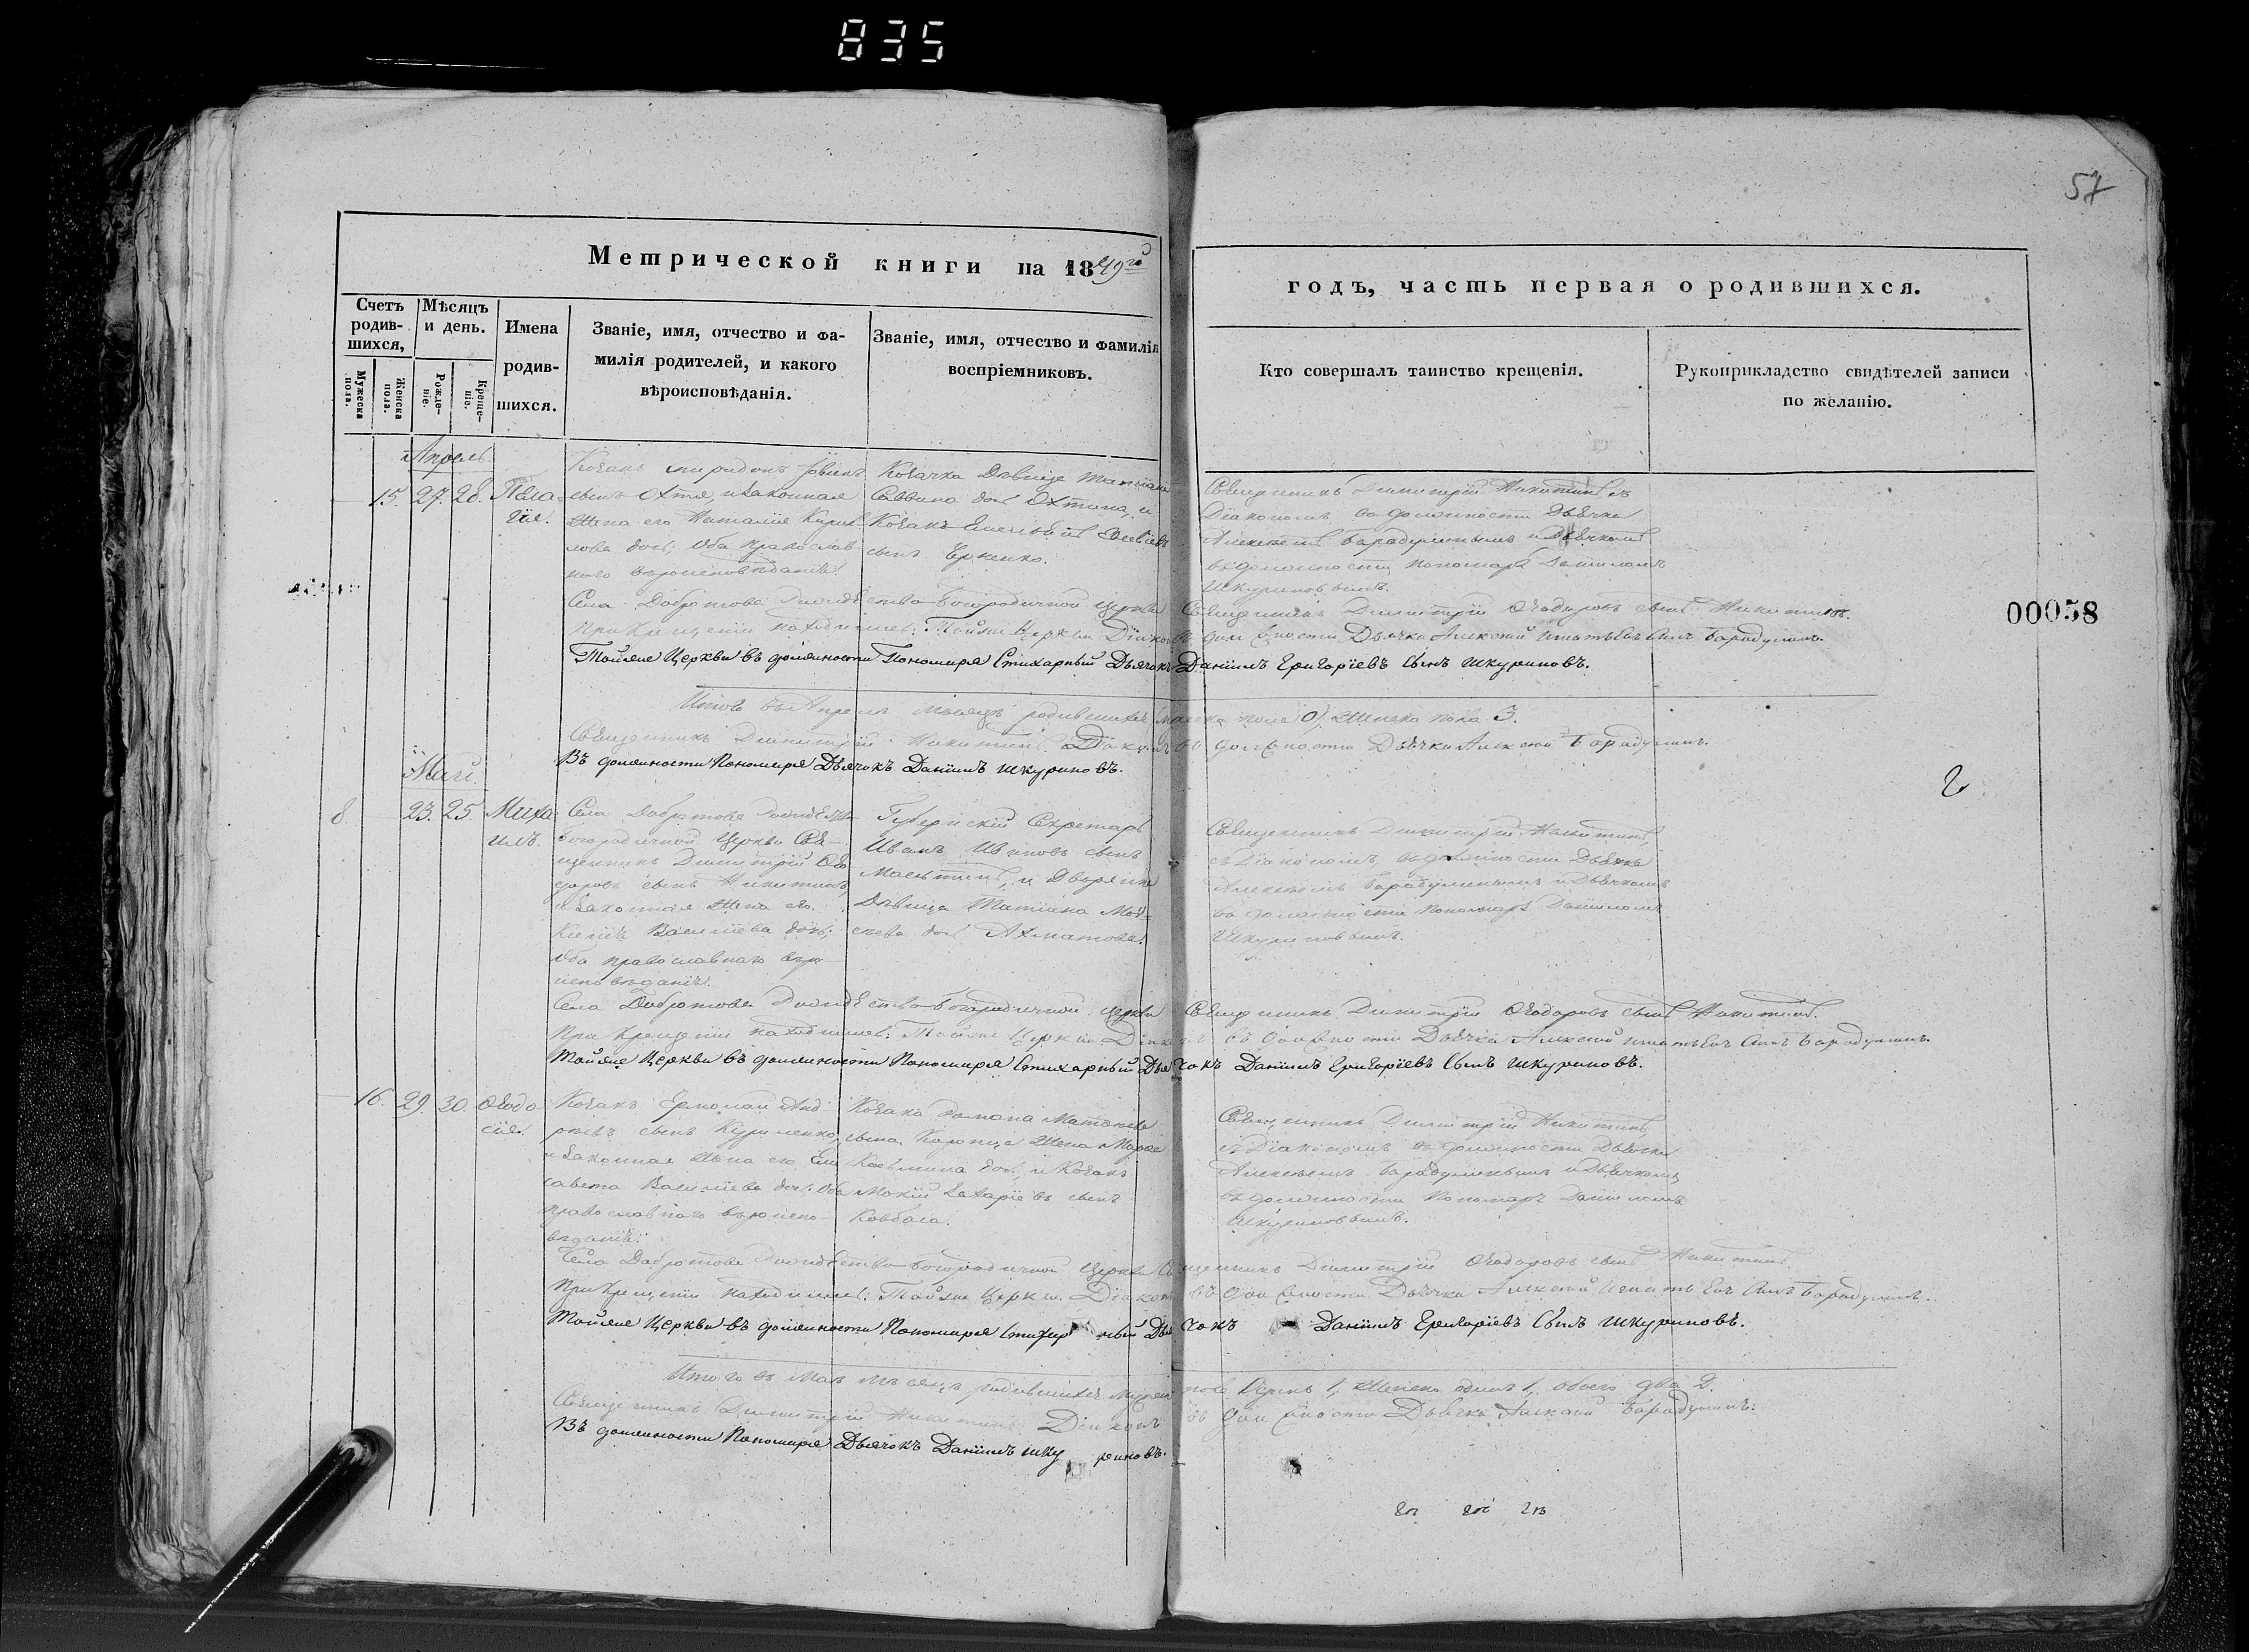 835
57
Метрической книги на 1849го
годъ, часть первая о родившихся.
Счетъ родив-шихся,
Мѣсяцъ и день.
Мужеска пола.
Женска пола.
Рожде-ніе.
Креще-ніе.
Имена
родив-
шихся.
Званіе, имя, отчество и фа-
милія родителей, и какого
вѣроисповѣданія.
Званіе, имя, отчество и фамилія
воспріемниковъ.
Кто совершалъ таинство крещенія.
Рукоприкладство свидѣтелей записи
по желанію.
Апрель.
15. 27. 28. Пела
гія.
Козакъ
сынъ Охтя, и законная
жена его Наталія Кирил
лова дочь; оба православ
наго вѣроисповѣданія.
Козачка Дѣвица Татіана
Саввина дочь Охтина, и
Козакъ
сынъ
Священникъ Димитрій Никитинъ съ
Діакономъ въ должности Дьячка
Алексѣемъ Барадулинымъ и Дьячкомъ
въ должности Пономаря Даніиломъ
Шкуриновымъ.
Села Добротова Рождество-Богородичной Церкви Священникъ Димитрій Ѳеодоровъ сынъ Никитинъ.
При Крещеніи находился: Тойже Церкви Діаконъ въ должности Дьячка Алексѣй Игнатьевъ сынъ Барадулинъ.
Тойже Церкви въ должности Пономаря Стихарный Дьячокъ Даніилъ Григоріевъ сынъ Шкуриновъ.
00058
Итого въ Апрелѣ мѣсяцѣ родившихся мужеска пола 0, женска пола 3.
Священникъ Димитрій Никитинъ. Діаконъ въ должности Дьячка Алексѣй Барадулинъ.
Въ должности Пономаря Дьячокъ Даніилъ Шкуриновъ.
Маій.
8. 23. 25. Миха
илъ.
Села Добротова Рождество-
Богородичной Церкви Свя-
щенникъ Димитрій Ѳео
доровъ сынъ Никитинъ,
и законная жена его
Василіева дочь;
оба православнаго вѣро
исповѣданія.
Губернскій Секретарь
Иванъ Ивановъ сынъ
и Дворянка
Дѣвица Татіана Мой-
сеева дочь Ахматова.
Священникъ Димитрій Никитинъ,
съ Діакономъ въ должности Дьячка
Алексѣемъ Барадулинымъ и Дьячкомъ
въ должности Пономаря Даніиломъ
Шкуриновымъ.
Села Добротова Рождество-Богородичной Церкви Священникъ Димитрій Ѳеодоровъ сынъ Никитинъ.
При Крещеніи находился: Тойже Церкви Діаконъ въ должности Дьячка Алексѣй Игнатьевъ сынъ Барадулинъ.
Тойже Церкви въ должности Пономаря Стихарный Дьячокъ Даніилъ Григоріевъ сынъ Шкуриновъ.
16. 29. 30. Ѳеодо
сія.
Козакъ Ермолай Анд
реевъ сынъ Куриленко,
и законная жена его Ели
савета Василіева дочь; оба
православнаго вѣроиспо-
вѣданія.
Козака Романа
сына жена Марѳа
Косьмина дочь, и Козакъ
Мокій Захаріевъ сынъ
Ковбаса.
Священникъ Димитрій Никитинъ,
съ Діакономъ въ должности Дьячка
Алексѣемъ Барадулинымъ и Дьячкомъ
въ должности Пономаря Даніиломъ
Шкуриновымъ.
Села Добротова Рождество-Богородичной Церкви Священникъ Димитрій Ѳеодоровъ сынъ Никитинъ.
При Крещеніи находился: Тойже Церкви Діаконъ въ должности Дьячка Алексѣй Игнатьевъ сынъ Барадулинъ.
Тойже Церкви въ должности Пономаря Стихарный Дьячокъ Даніилъ Григоріевъ сынъ Шкуриновъ.
Итого въ Маѣ мѣсяцѣ родившихся мужеска пола 1, женска одна 1, обоего два 2.
Священникъ Димитрій Никитинъ. Діаконъ въ должности Дьячка Алексѣй Барадулинъ.
Въ должности Пономаря Дьячокъ Даніилъ Шкуриновъ.